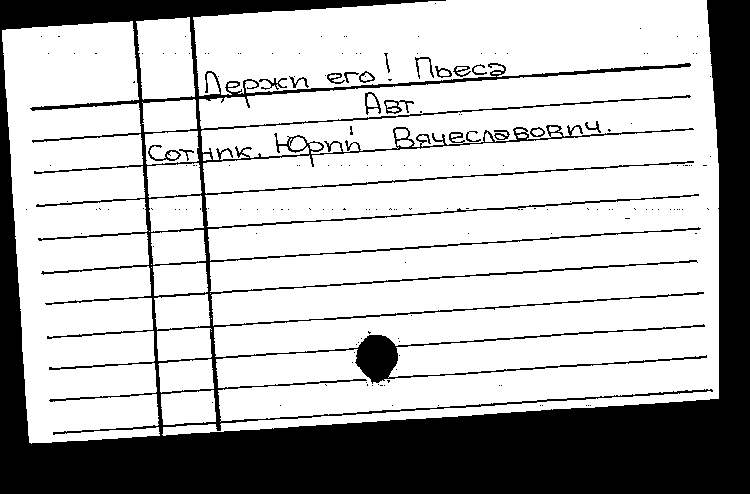 Держи его! Пьеса
Авт.
Сотник. Юрий Вячеславович.